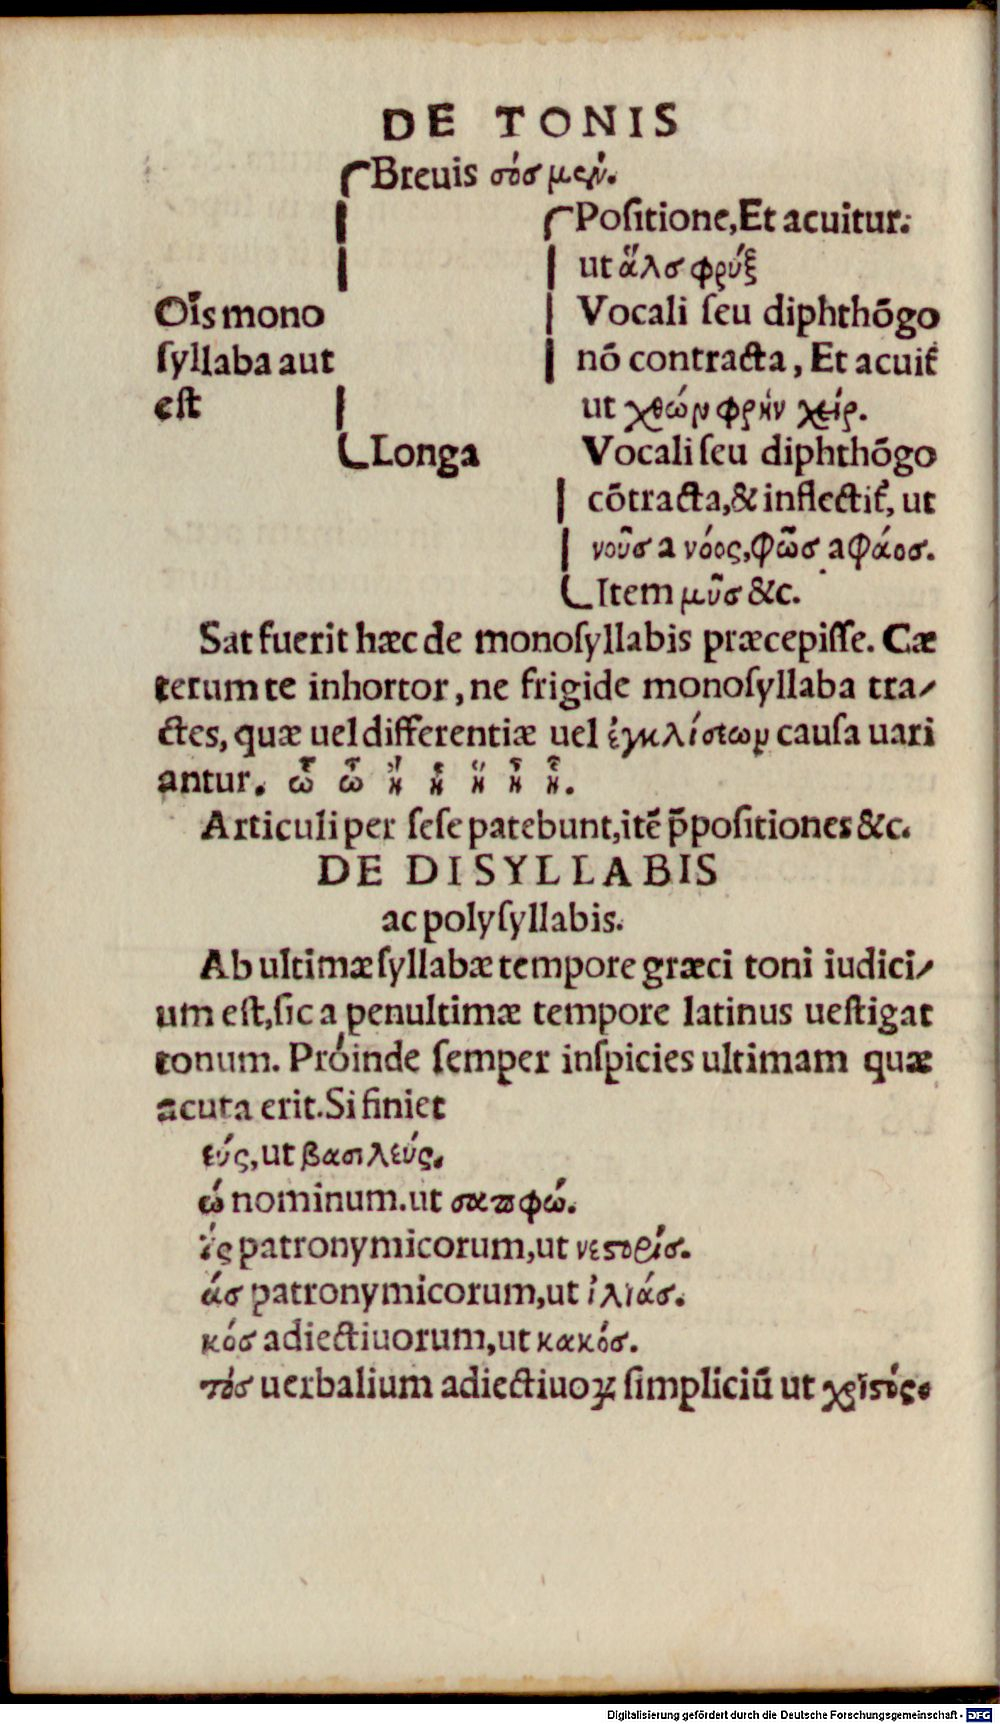 DE TONIS
Breuis σόσ μέν.
Poſitione, Et acuitur.
ut ἅλσ φρύξ
Oīs mono
Vocali ſeu diphthōgo
ſyllaba aut
nō contracta, Et acuit᷑
eſt
ut χθών φρήν χείρ.
Longa
Vocali ſeu diphthōgo
cōtracta, & inflectit᷑, ut
νοῦσ a νόος, φῶσ a φάοσ.
Item μῦσ &c.
Sat fuerit hæc de monoſyllabis præcepiſſe. Cæ
terum te inhortor, ne frigide monoſyllaba tra⸗
ctes, quæ uel differentiæ uel ἐγκλίσεωρ cauſa uari
antur.
Articuli per ſeſe patebunt, itē p̄poſitiones &c.
DE DISYLLABIS
ac polyſyllabis.
Ab ultimæ ſyllabæ tempore græci toni iudici⸗
um eſt, ſic a penultimæ tempore latinus ueſtigat
tonum. Próinde ſemper inſpicies ultimam quæ
acuta erit. Si finiet
εύς, ut βασιλεύς.
ώ nominum. ut σαπφώ.
ίς patronymicorum, ut νεϛορίσ.
άσ patronymicorum, ut ἰλιάσ.
κόσ adiectiuorum, ut κακόσ.
τόσ uerbalium adiectiuoꝝ ſimpliciū ut χριϛός.
Digitalisierung gefördert durch die Deutsche Forschungsgemeinschaft - DFG